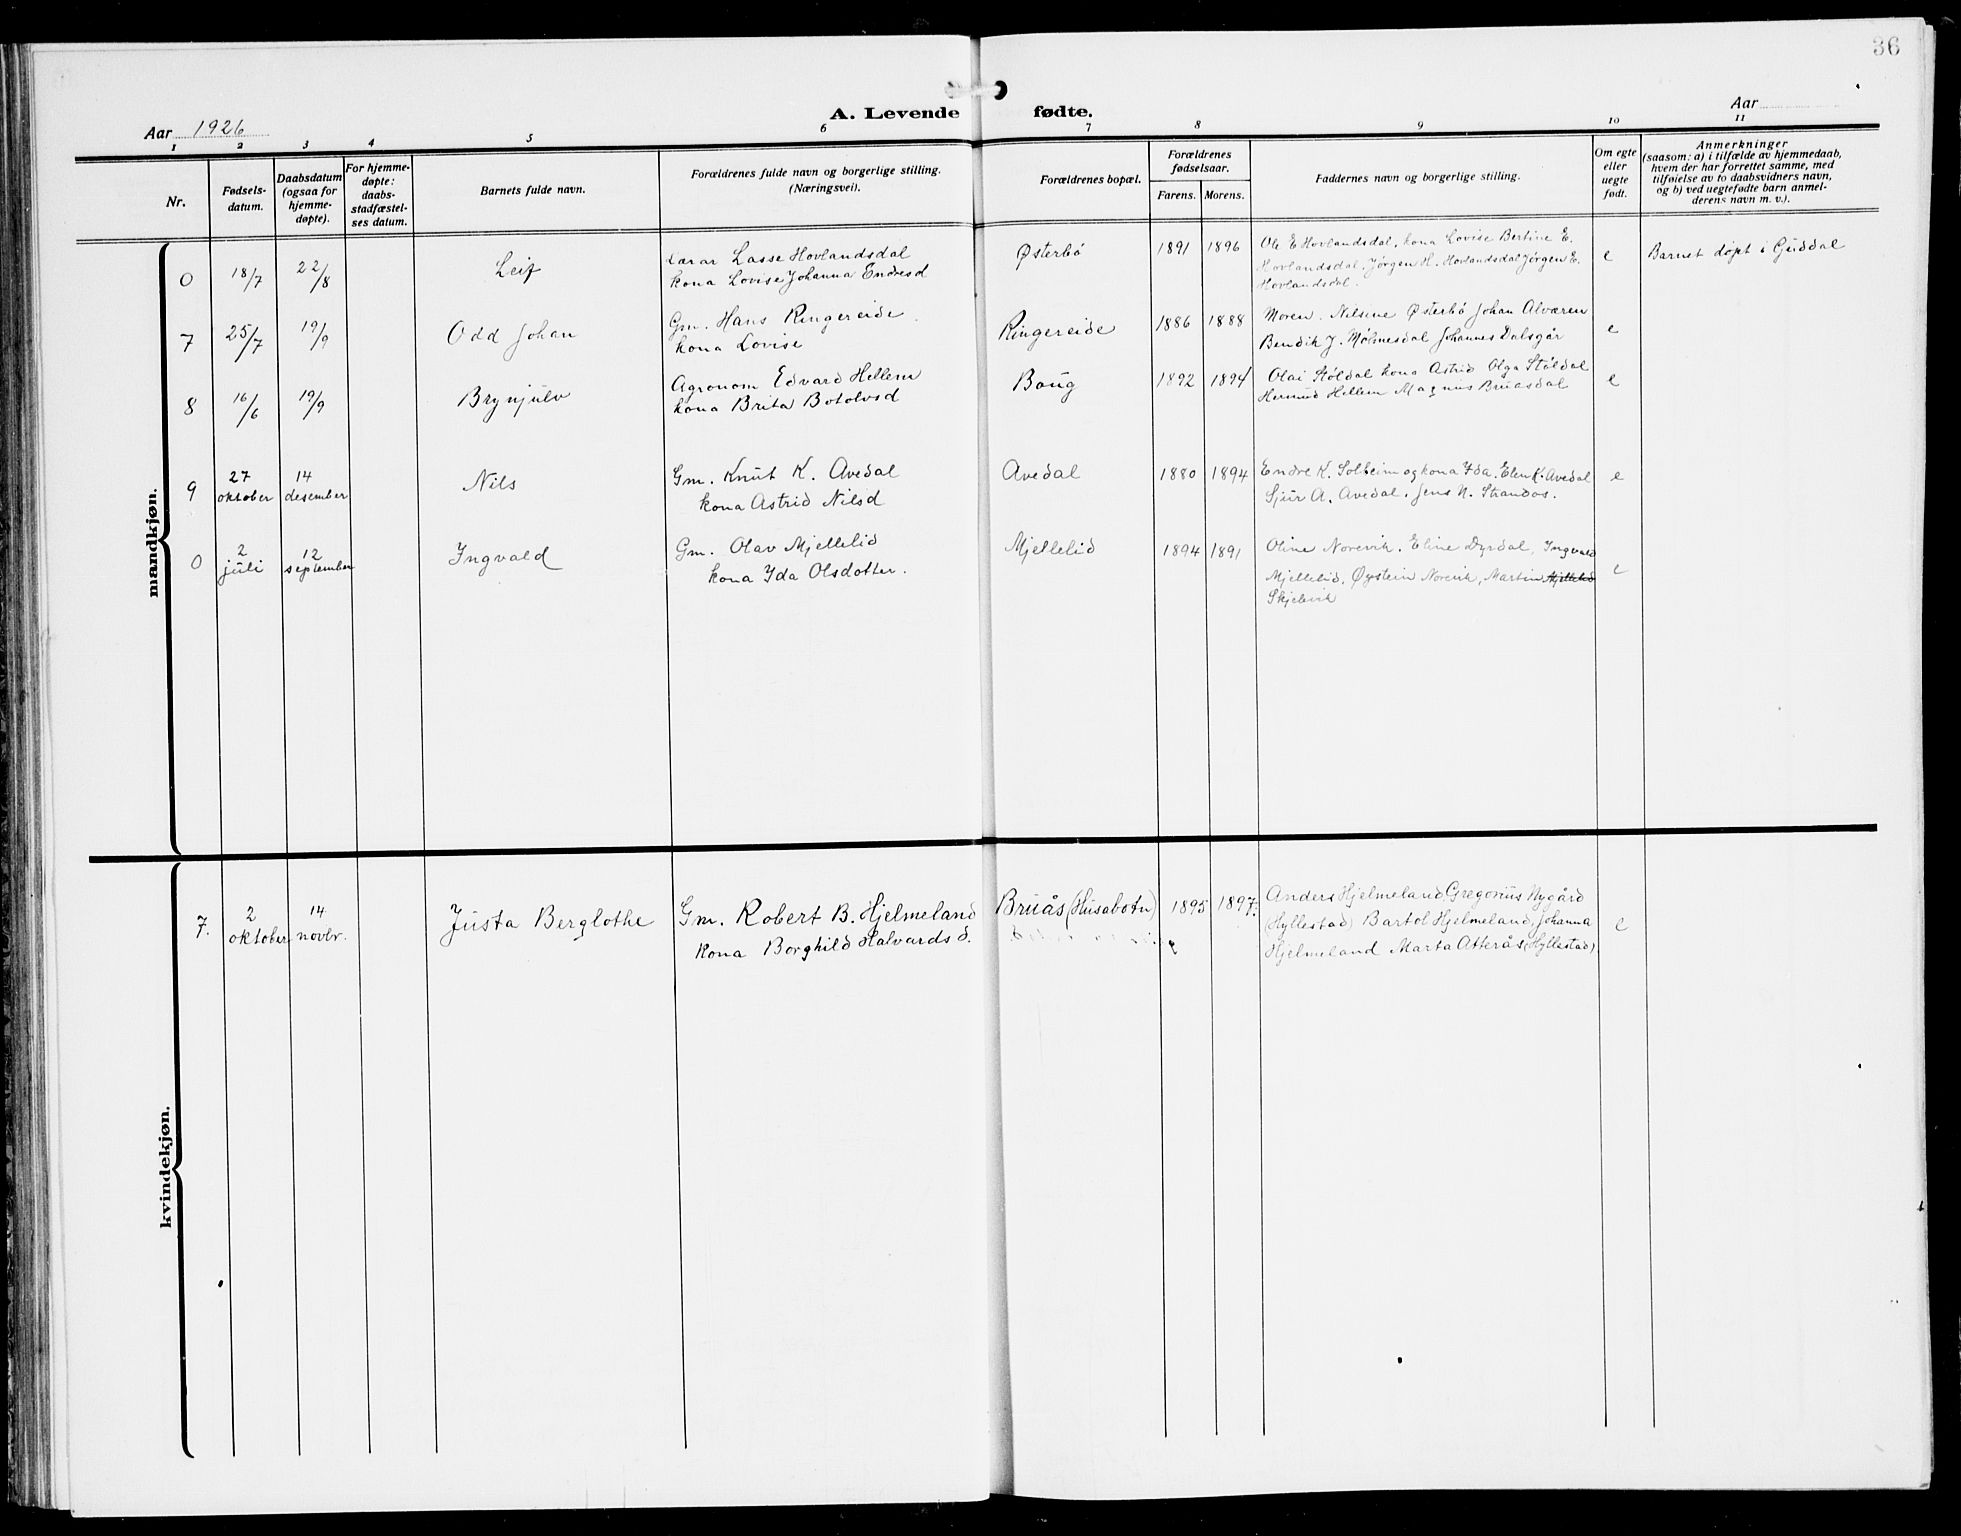 36
A. Levende fødte.
Aar 1926
Aar
1 2 3 4 5 6 7 8 9 10 11
Nr.
Fødsels-
datum.
Daabsdatum
(ogsaa for
hjemme-
døpte).
For hjemme-
døpte:
daabs-
stadfæstel-
ses datum.
Barnets fulde navn.
Forældrenes fulde navn og borgerlige stilling.
(Næringsvei).
Forældrenes bopæl.
Forældrenes
fødselsaar.
Farens. Morens.
Faddernes navn og borgerlige stilling.
Om egte
eller
uegte
født.
Anmerkninger
(saasom: a) i tilfælde av hjemmedaab,
hvem der har forrettet samme, med
tilføielse av to daabsvidners navn,
og b) ved uegtefødte barn anmel-
derens navn m. v.).
mandkjøn.
0 18/7 22/8 Leif
Lærar Lasse Hovlandsdal
kona Lovise Johanna Endresd
Østerbø 1891 1896
Ole E Hovlandsdal, kona Lovise Bertine E.
Hovlandsdal, Jørgen H. Hovlandsdal Jørgen E.
Hovlandsdal.
e
Barnet døpt i Guddal
7 25/7 19/9 Odd Johan
Gm. Hans Ringereide
kona Lovise
Ringereide 1886 1888
Moren. Nilsine Østerbø Johan Alværen
Bendik J. Mølmesdal Johannes Dalsgår
e
8 16/6 19/9 Brynjulv
Agronom Edvard Hellem
kona Brita Botolvsd
Baug 1892 1894
Olai Støldal kona Astrid Olga Støldal
Hermud Hellem Magnus Bruasdal
e
9 27 oktober 14 desember Nils
Gm. Knut K. Avedal
kona Astrid Nilsd
Avedal 1880 1894
Endre K. Solheim og kona Ida. Elen K. Avedal
Sjur A. Avedal. Jens N. Strandos.
e
0 2 juli 12 september Ingvald
Gm. Olav Mjellelid
kona Ida Olsdotter.
Mjellelid 1894 1891
Oline Norevik. Eline Dyrdal, Ingvald
Mjellelid, Øystein Norevik, Martin Mjellelid
Skjelevik
e
kvindekjøn.
7. 2 oktober 14 novbr. Justa Berglothe
Gm. Robert B. Hjelmeland
kona Borghild Halvardsd.
Bruås (Husabotn) 1895 1897.
Anders Hjelmeland, Gregorius Nygård
(Hyllestad) Bartol Hjelmeland, Johanna
Hjelmeland Marta Atterås (Hyllestad).
e